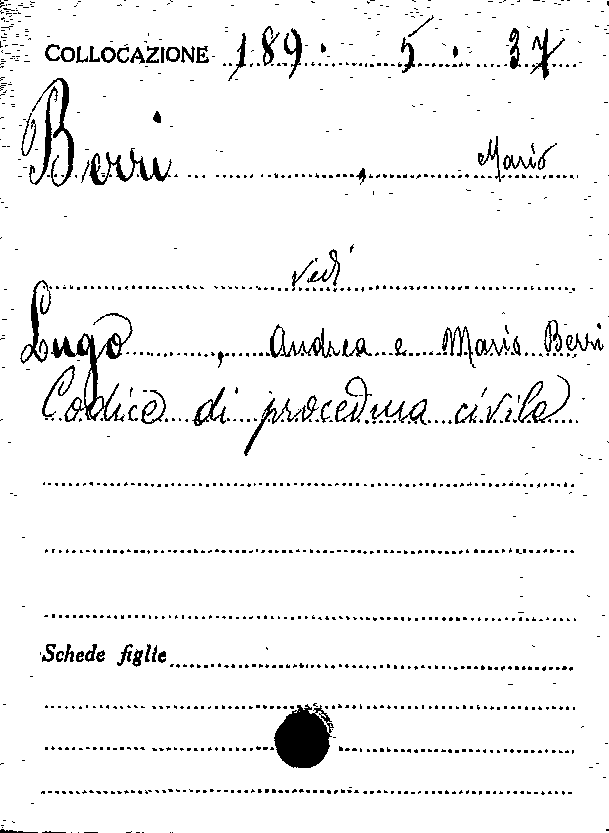 COLLOCAZIONE 189. 5. 37
Berri , Mario
vedi
Lugo , Andrea e Mario Berri
Codice di procedura civile
Schede figlie